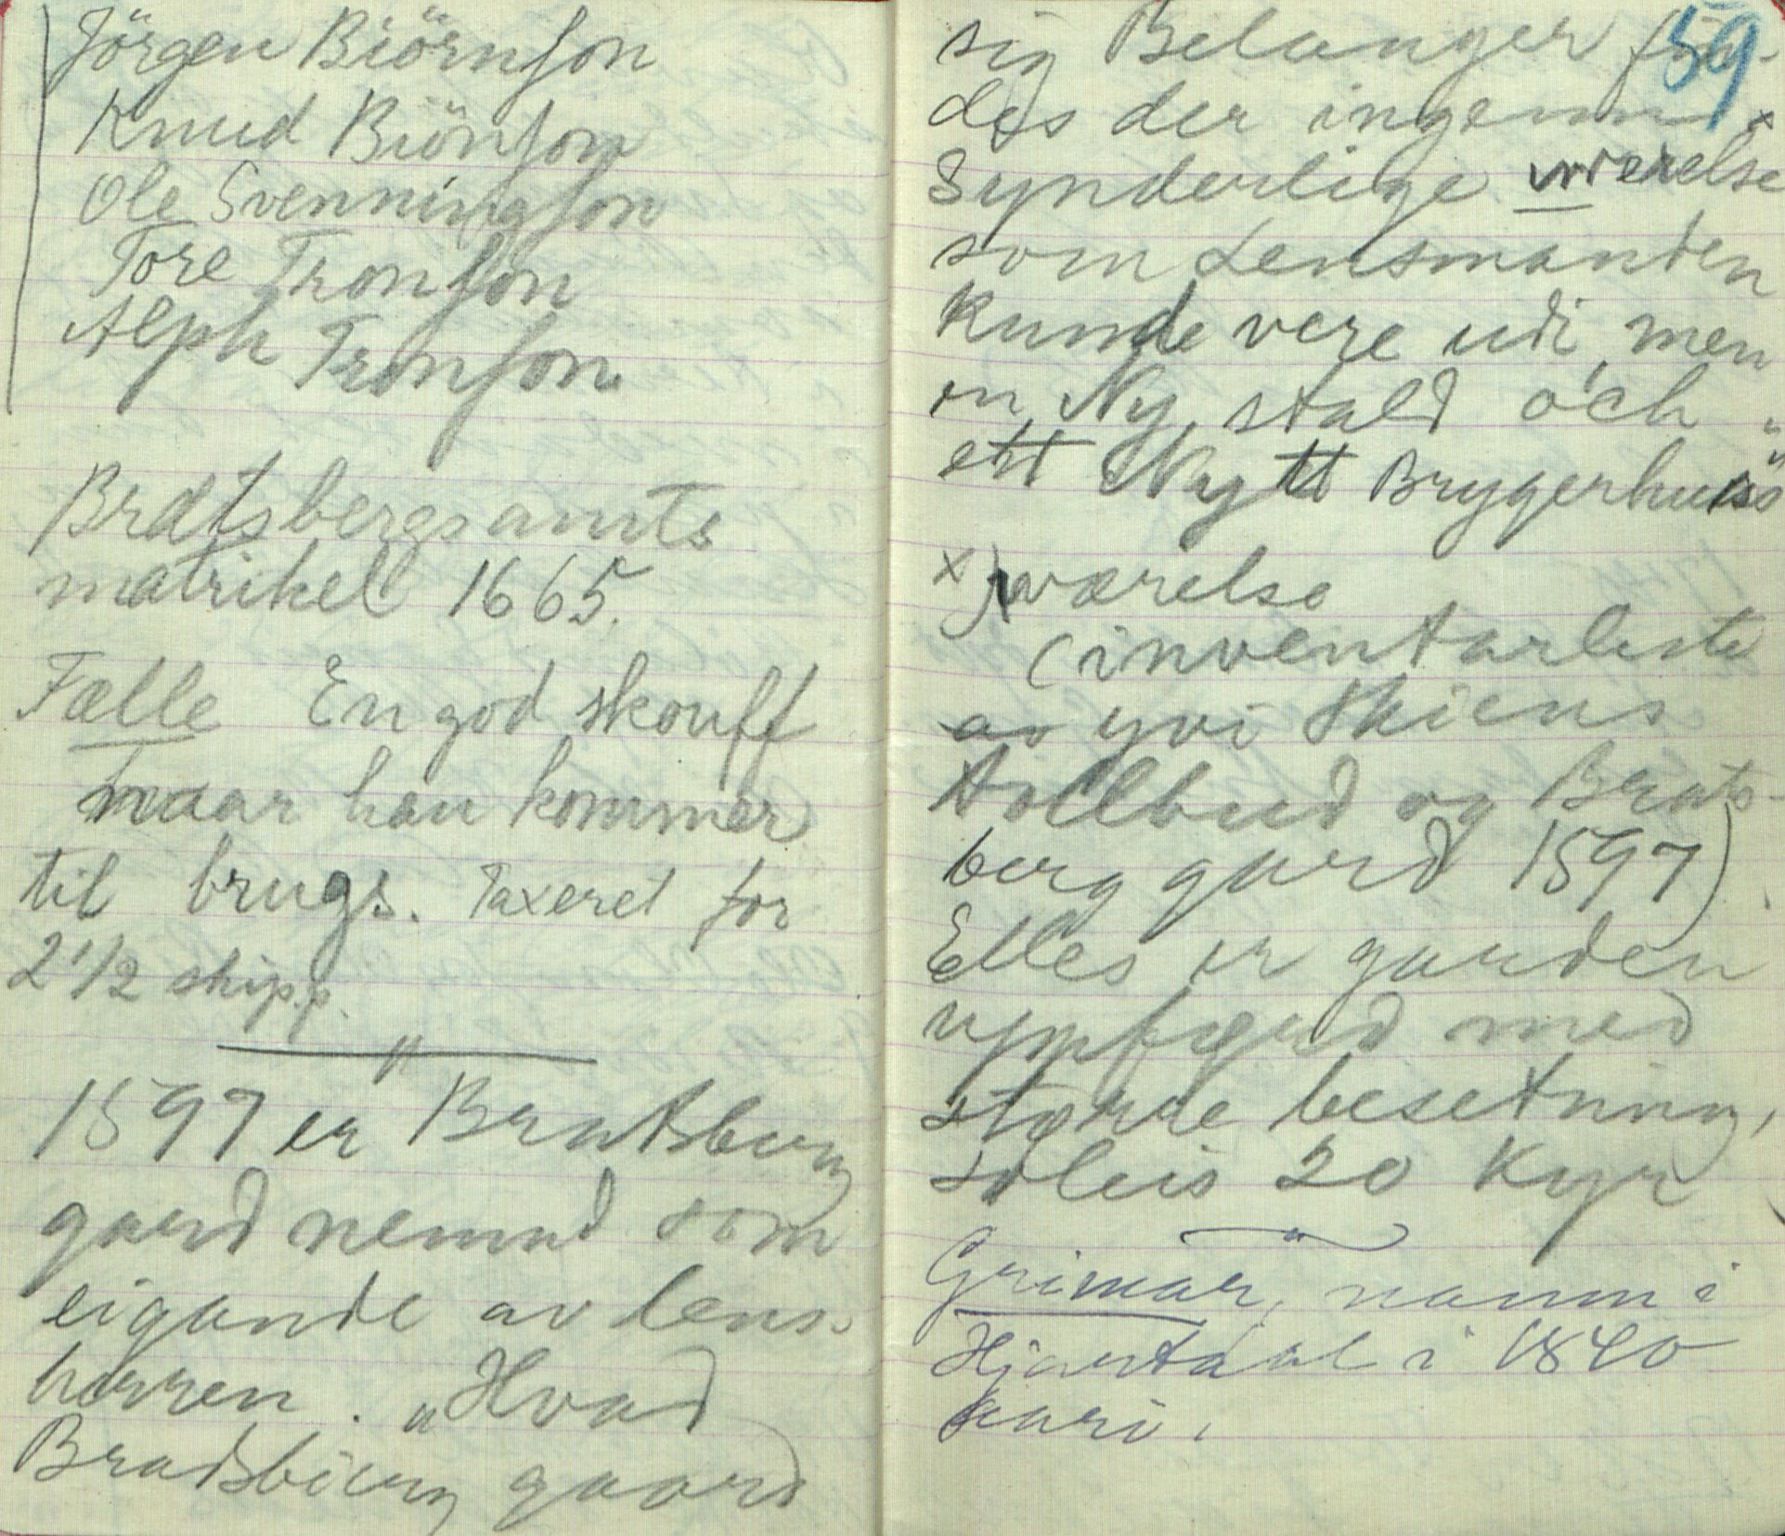 Jörgen Biörnson
Knud Biönson
Ole Svenningson
Tore Tronson
Alph Tronson.
Bratsbergs amts
matrikel 1665.
Fælle En god skouff
naar han kommer
til brugs. Taxeret for
2 1/2 skip.p.
1597 er Bratsberg
gard nemnd som
eigande av lens-
herren. „Hvad
Bradsbierg gaard
59
sig Belanger fin-
des der ingenn
Synderlige værelse x
som Lensmanden
Kunde vere udi, men
en Ny stald och
ett Nytt Brygerhus"
x) værelse
(inventarliste
av yvi Skiens
tollbud og Brats-
berg gard 1597)
Elles er garden
uppførd med
større besetning,
soleis 20 Kyr
Grimar, namn i
Hjartdal i 1840
aari.